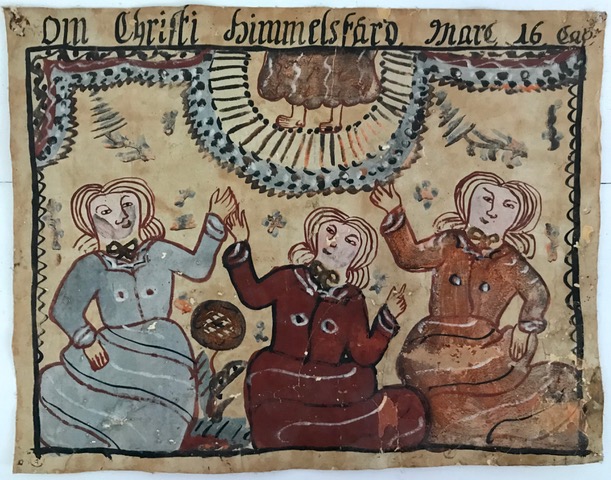 Om Christi Himmelsfärd, Marc, 16 Cap: